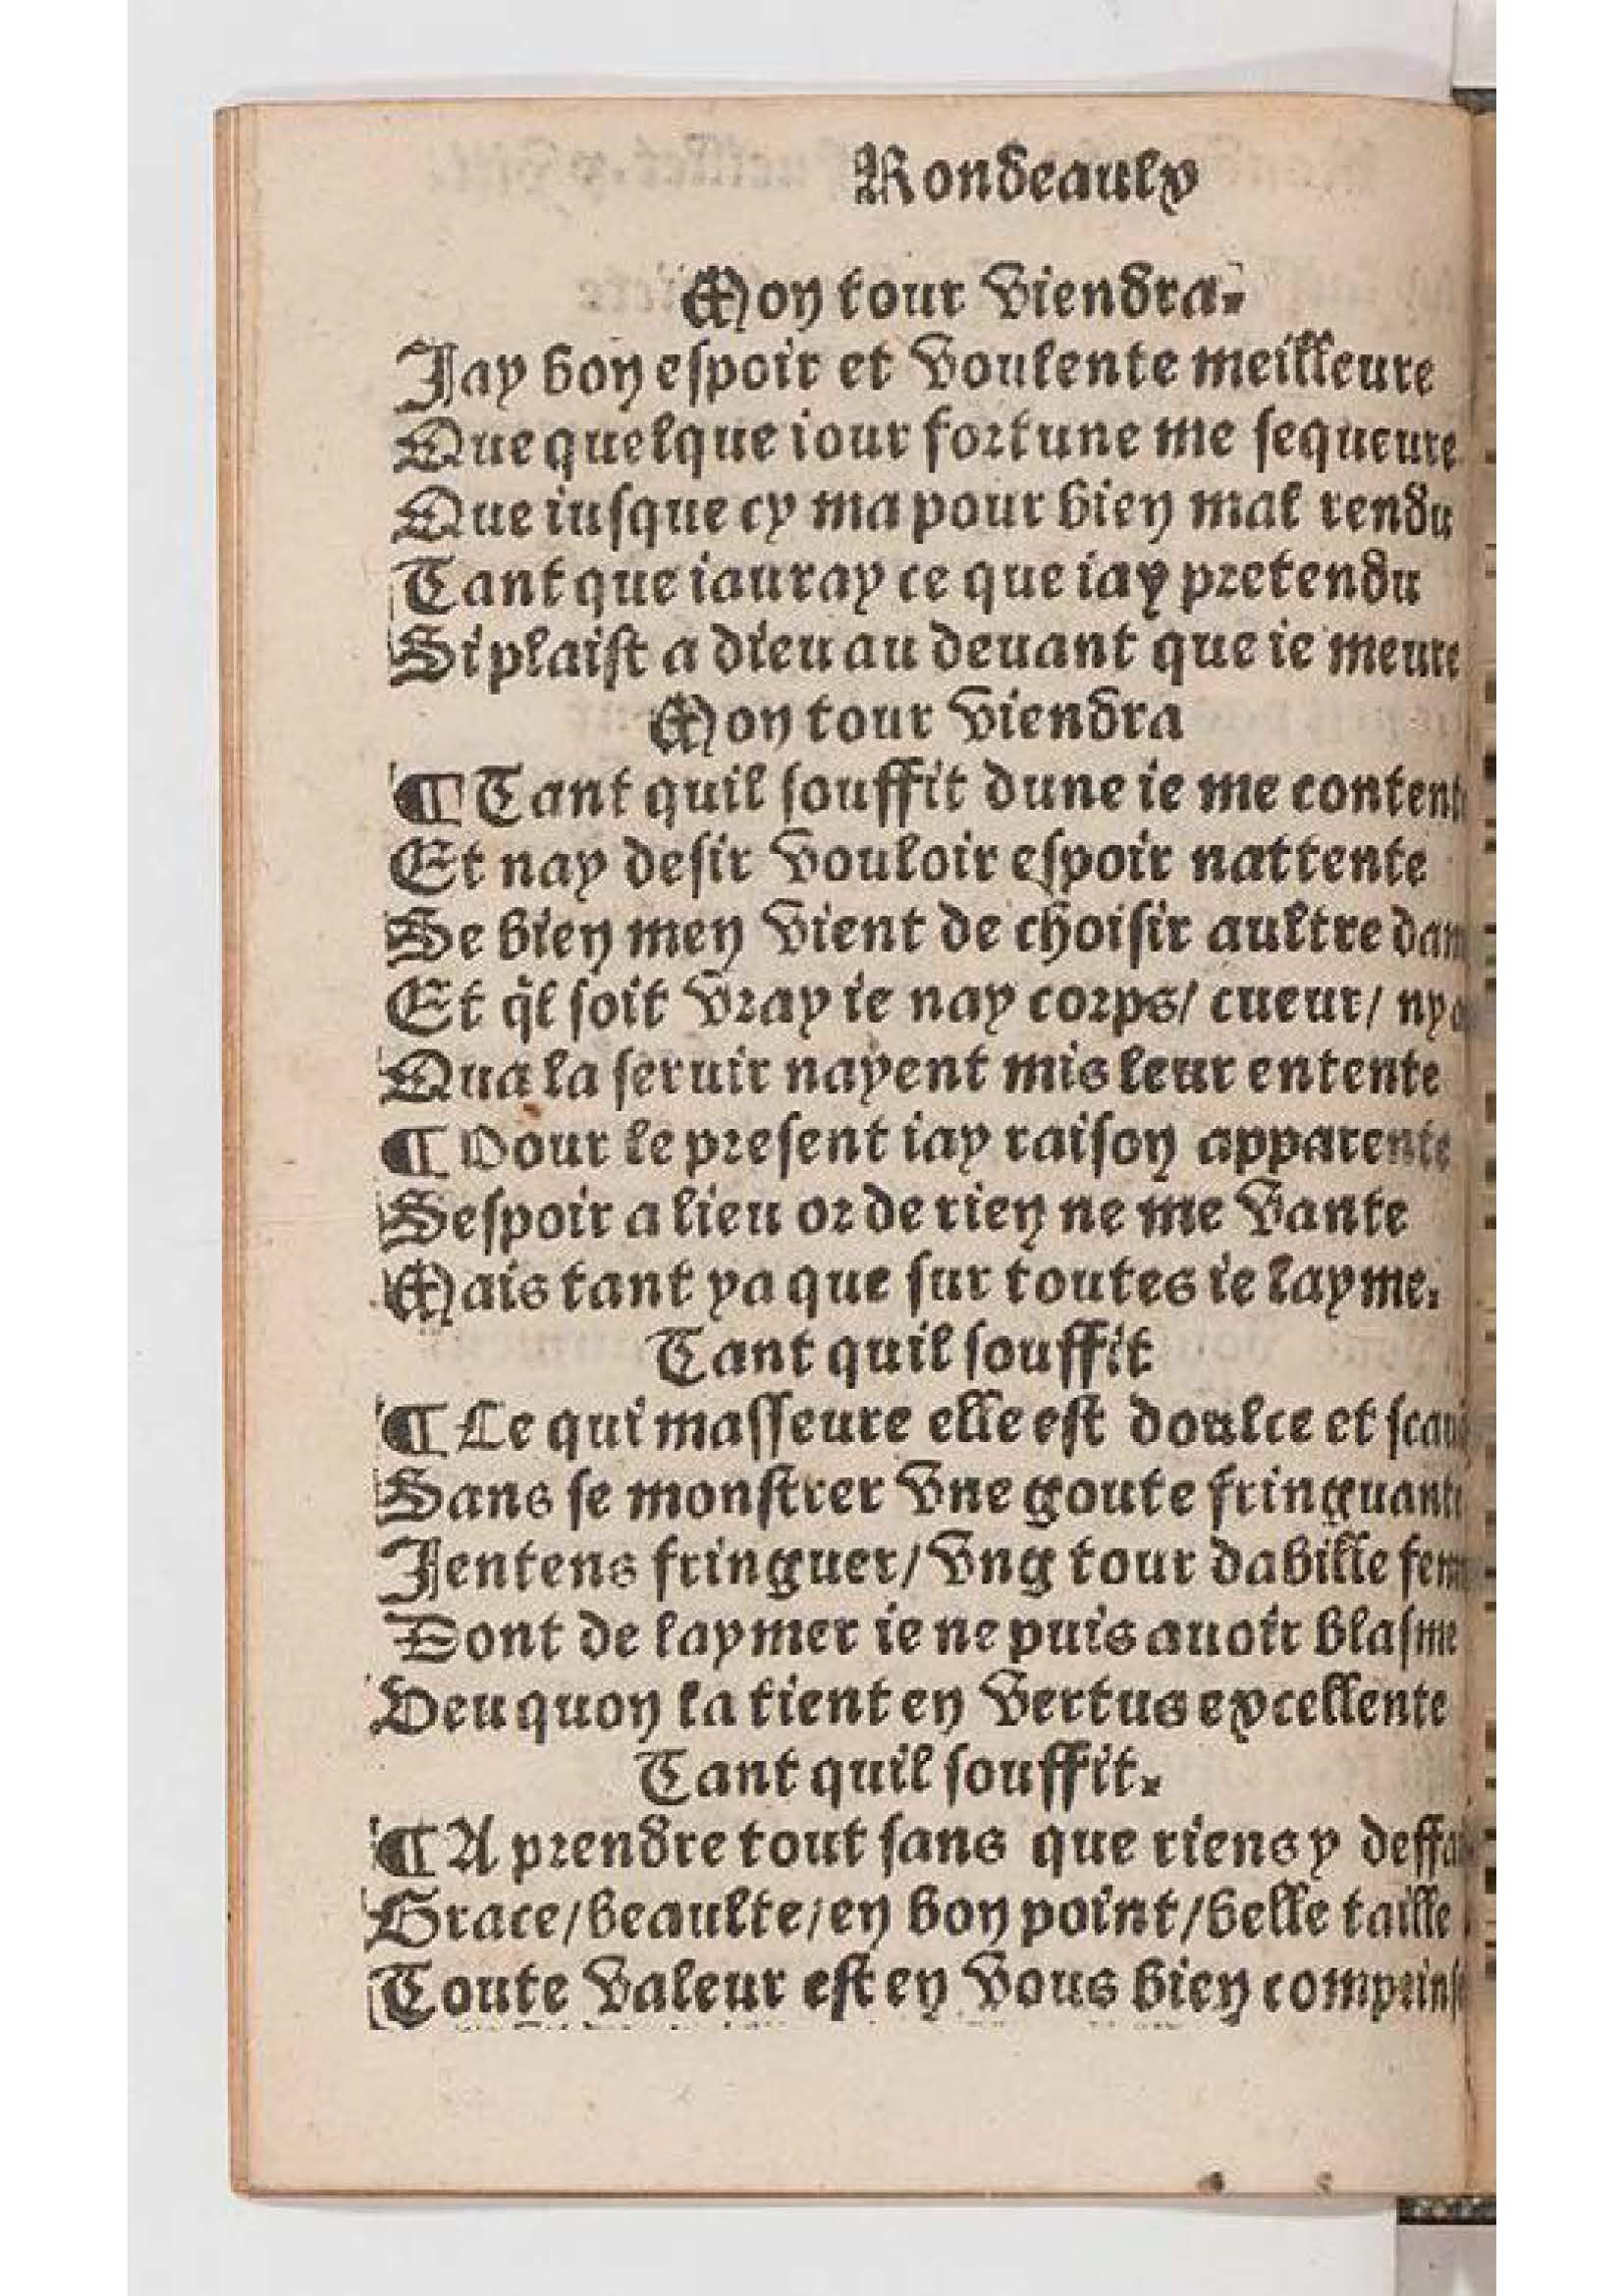 Rondeaulx
Mon tour viendra.
Jay bon espoir et voulente meilleure
Que quelque iour fortune me sequeure
Que iusque cy ma pour bien mal rendu
Tant que iauray ce que iay pretendu
Si plaist a dieu au deuant que ie meure
Mon tour viendra
¶ Tant quil souffit dune ie me content
Et nay desir vouloir espoir nattente
Se bien men vient de choisir aultre
Et ql̃ soit vray ie nay corps/ cueur/ ny
Qua la seruir nayent mis leur entente
¶ Pour le present iay raison apparente
Sespoir a lieu or de rien ne me vante
Mais tant ya que sur toutes ie layme.
Tant quil souffit
¶ Ce qui masseure elle est doulce et
Sans se monstrer vne goute fringuante
Jentens fringuer/ vng tour dabille
Dont de laymer ie ne puis auoir blasme
Veu quon la tient en vertus excellente
Tant quil souffit.
¶ A prendre tout sans que riens y
Grace/ beaulte/ en bon point/ belle taille
Toute valeur est en vous bien comprins